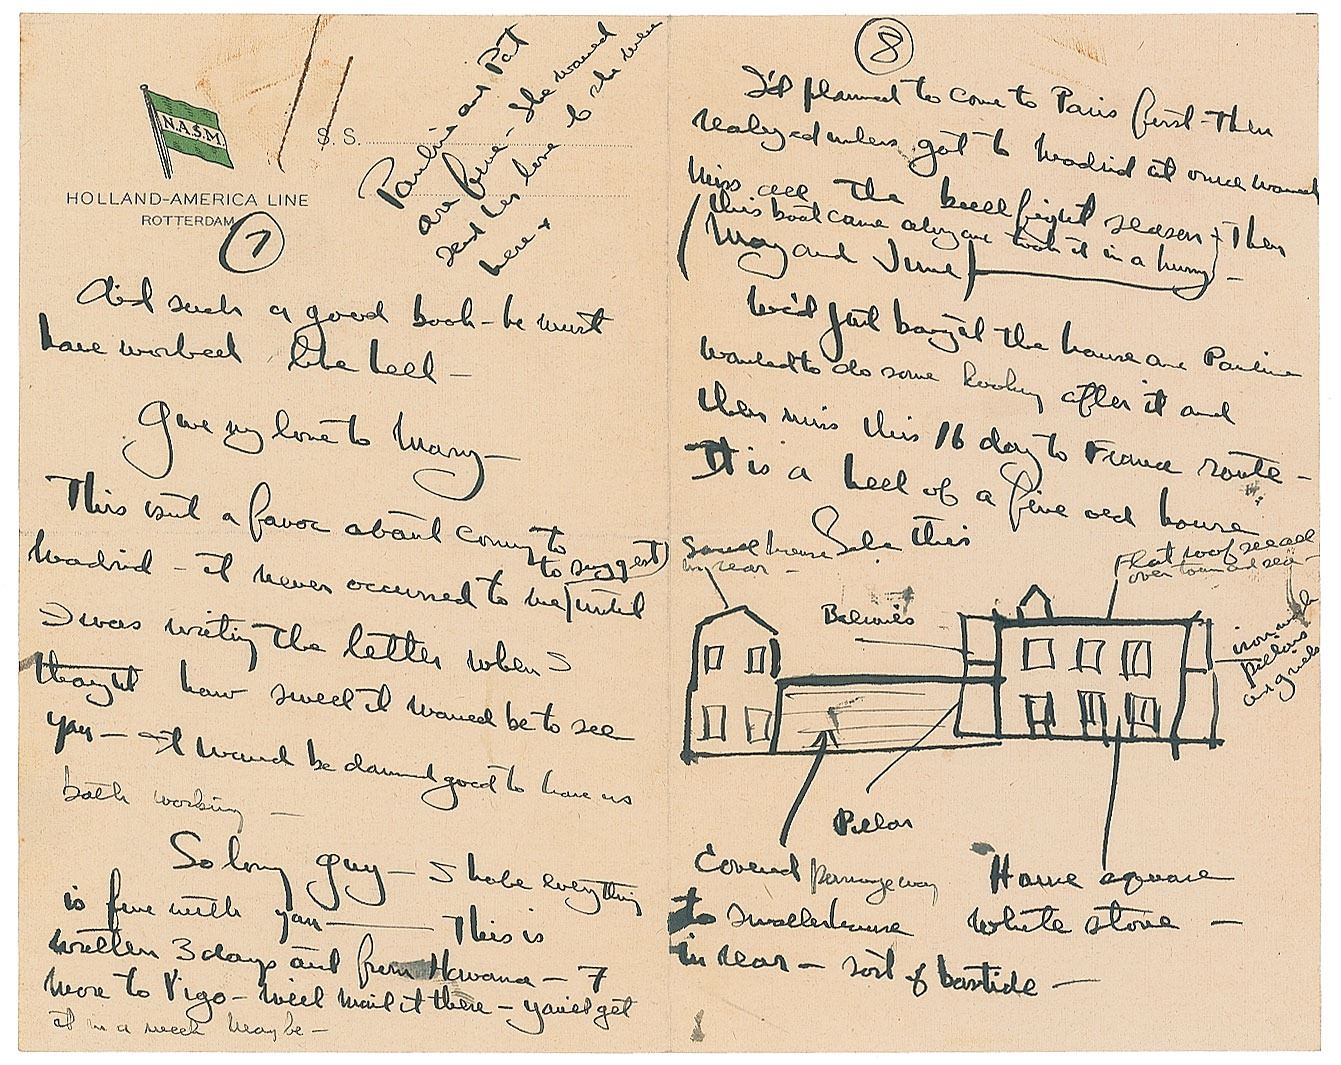 N.A.S.M
HOLLAND-AMERICA LINE
ROTTERDAM
S.S.
Pauline and Pat
are fine - She would
send her love to
here +
7
did such a good book - he must
have worked like hell -
Give my love to Mary -
This isnt a favor about coming to
Madrid - it never occurred to me (until
to suggest)
I was writing the letter when I
thought how sweet it would be to see
you - it would be damned good to have us
both working -
So long guy - I hope everything
is fine with you - This is
written 3 days out from Havana - 7
more to Vigo - Will mail it there - you'll get
it in a week maybe -
8
I'd planned to come to Paris first - Then
realized unless got to Madrid at once would
miss all the bullfight season - Then
(this boat came along and took it in a hurry)
(May and June)
We'd just bought the house and Pauline
wanted to do some looking after it and
then miss this 16 day to France route -
It is a hell of a fine old house
like this
Small house
in rear -
Flat roof see all
over town and sea -
Balconies
iron
pillars
Pillar
Covered passage way
to smaller house
in rear - sort of bastide -
House square
white stone -